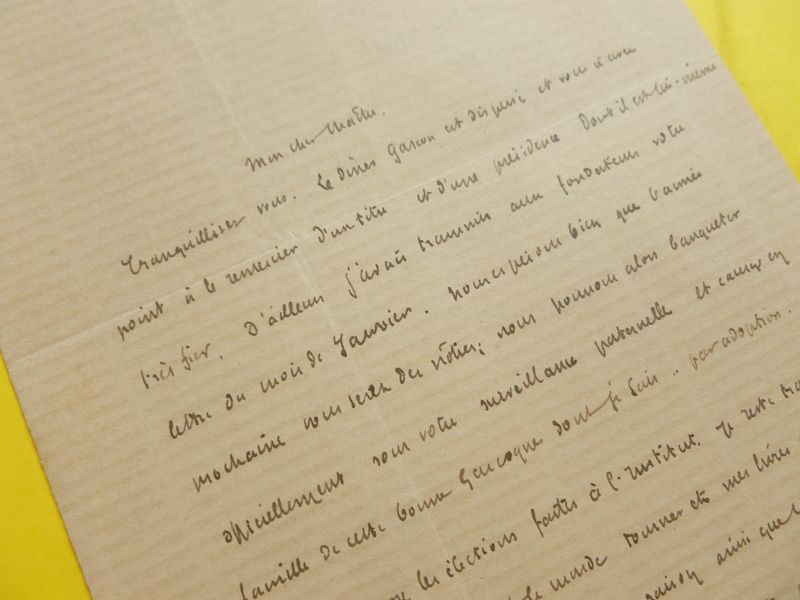 Mon cher Maître.
Tranquillisez vous. Le dîner Gascon est dispersé et vous n'avez
point à le remercier d'un titre et d'une présidence dont il est lui-même
très fier. D'ailleurs j'avais transmis aux fondateurs votre
lettre du mois de Janvier. Nous espérons bien que l'année
prochaine vous serez des nôtres; nous pourrons alors banqueter
officiellement sous votre surveillance paternelle et causer en
famille de cette bonne Gascogne dont je suis .. par adoption.
les élections faites à l'Institut. Je reste
le monde tourner et mes livres
raison ainsi que